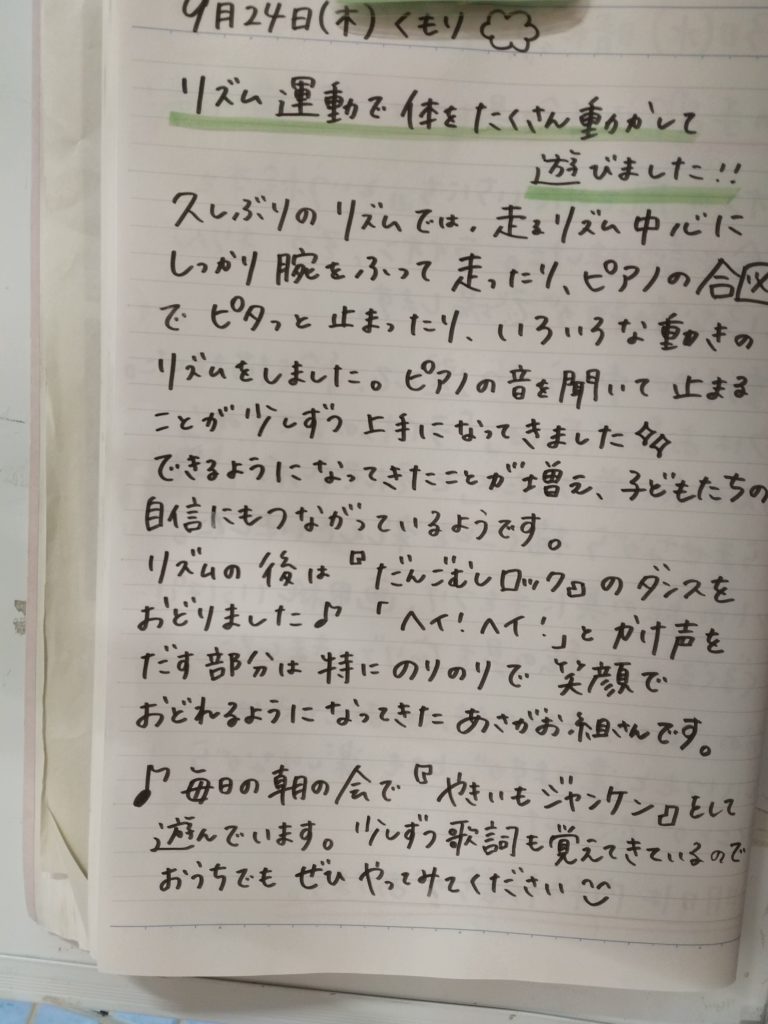 9月24日(木) くもり
リズム 運動で 体を たくさん動かして
遊びました!!
久しぶりの リズムでは、走るリズム 中心に
しっかり 腕を ふって 走ったり、ピアノの 合図
で ピタっと 止まったり、いろいろな 動きの
リズムをしました。ピアノの 音を 聞いて 止まる
ことが 少しずつ 上手になってきました
できるように なってきたことが 増え、子どもたちの
自信にもつながっているようです。
リズムの 後は『だんごむしロック』の ダンスを
おどりました♪ 「ヘイ!ヘイ!」と かけ声を
だす 部分は 特に のりのりで 笑顔で
おどれるように なってきた あさがお組さんです。
♪ 毎日の 朝の 会で『やきいも ジャンケン』をして
遊んでいます。少しずつ 歌詞も 覚えてきているので
おうちでも ぜひ やってみてください